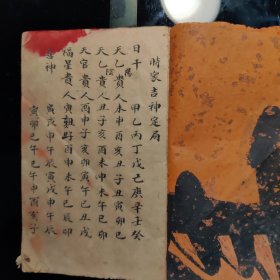 時家吉神定局
日干 甲乙丙丁戊己庚辛壬癸
陽
天乙貴人未申酉亥丑子丑寅卯巳
陰
天乙貴人丑子亥酉未申未午巳卯
天官貴人酉申子亥卯寅午巳丑戌
福星貴人寅 酉申未午巳辰卯
喜神 寅戌申午辰寅戌申午辰
寅卯巳午巳午申酉亥子